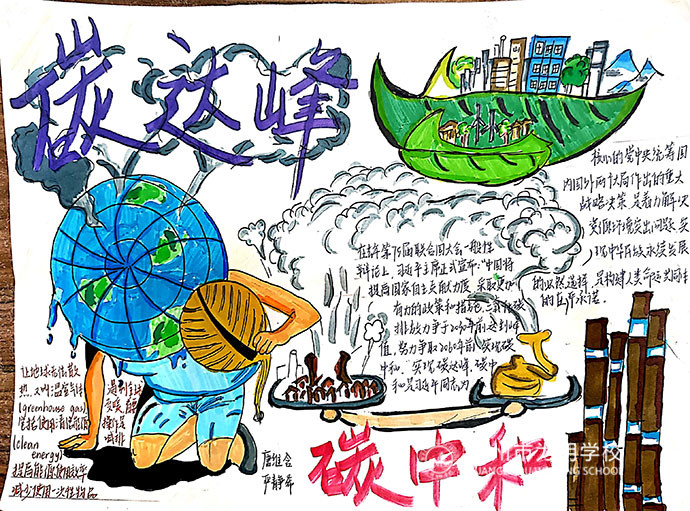 碳达峰
核心的党中央统筹国
内国外两个大局作出的重大
战略决策,是着力解决
资源环境突出问题,实
现中华民族永续发展
的必然选择,是构建人类命运共同体
的庄严承诺。
在第75届联合国大会一般性
辩论上,习近平主席正式宣布:“中国将
提高国家自主贡献力度,采取更加
有力的政策和措施,二氧化碳
排放力争于2030年前达到峰
值,努力争取2060年前实现碳
中和。”实现碳达峰、碳中
和是习近平同志为
让地球
温室气体
(greenhouse gas)
使用清洁能源
(clean
energy)
提高能源使用效率
减少使用一次性物品
碳中和
学校
SCHOOL